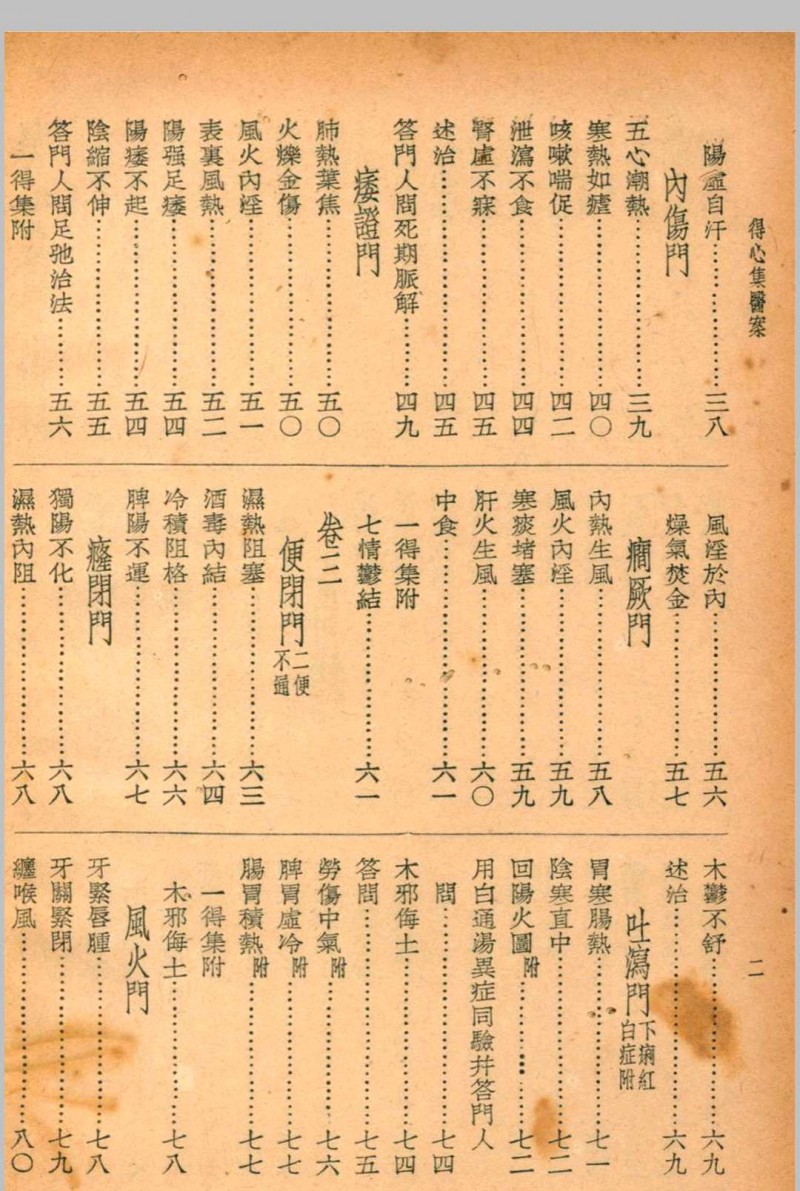 得心集醫案
二
陽虛自汗……三八
內傷門
五心潮熱……三九
寒熱如瘧……四〇
咳嗽喘促……四二
泄瀉不食……四四
腎虛不寐……四五
述治……四五
答門人問死期脈解……四九
痿證門
肺熱葉焦……五〇
火爍金傷……五〇
風火內淫……五一
表裏風熱……五二
陽强足痿……五四
陽痿不起……五四
陰縮不伸……五五
答門人問足弛治法……五六
一得集附
風淫於內……五六
燥氣焚金……五七
癇厥門
內熱生風……五八
風火內淫……五九
寒痰堵塞……五九
肝火生風……六〇
中食……六一
一得集附
七情鬱結……六一
卷三
便閉門二便不通
濕熱阻塞……六三
酒毒內結……六四
冷積阻格……六六
脾陽不運……六七
癃閉門
獨陽不化……六八
濕熱內阻……六八
木鬱不舒……六九
述治……六九
吐瀉門下痢紅白症附
胃寒腸熱……七一
陰寒直中……七二
回陽火圖附……七二
用白通湯異症同驗并答門人
問……七四
木邪侮土……七四
答問……七五
勞傷中氣附……七六
脾胃虛冷附……七七
腸胃積熱附……七七
一得集附
木邪侮土……七八
風火門
牙緊唇腫……七八
牙關緊閉……七九
纏喉風……八〇